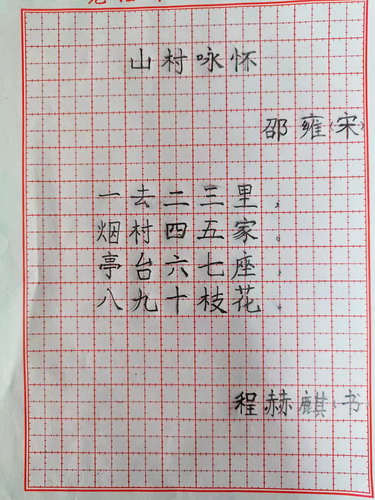 山村咏怀
邵雍(宋)
一去二三里，
烟村四五家。
亭台六七座，
八九十枝花。
程赫麒(书)